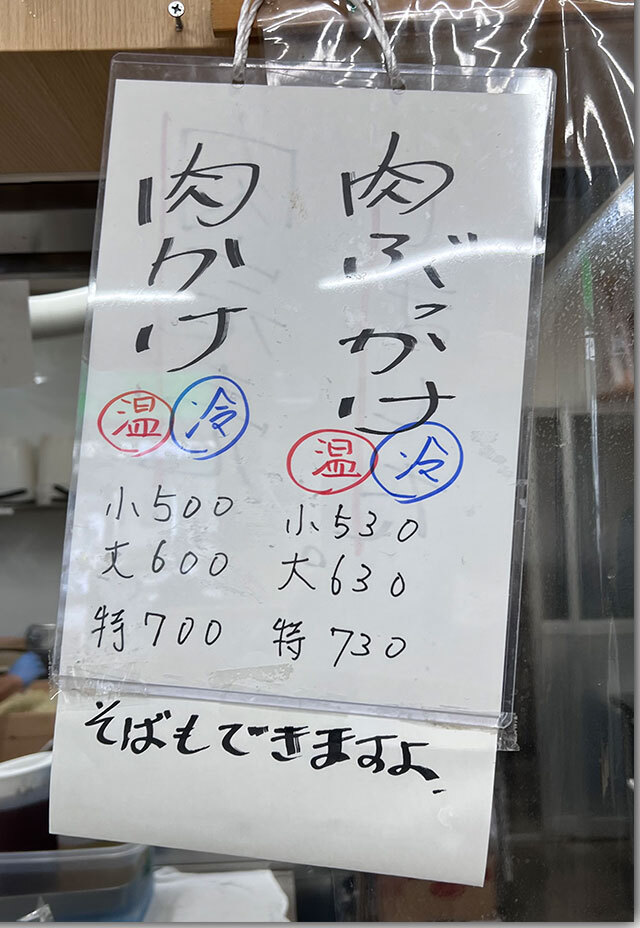 肉ぶっかけ
温 冷
小530
大630
特730
肉かけ
温 冷
小500
大600
特700
そばもできますよ